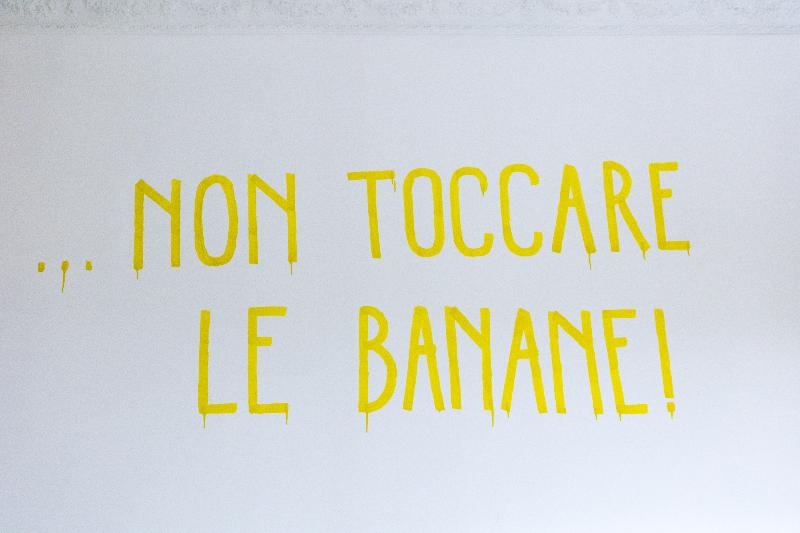 ... NON TOCCARE
LE BANANE!